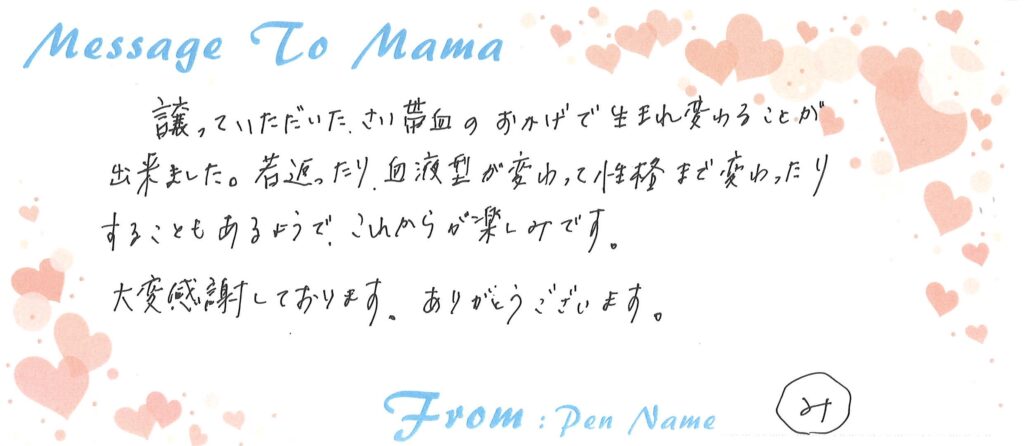 Message To Mama
譲っていただいた、さい帯血のおかげで生まれ変わることが
出来ました。若返ったり、血液型が変わって性格まで変わったり
することもあるようで、これからが楽しみです。
大変感謝しております。ありがとうございます。
From : Pen Name み